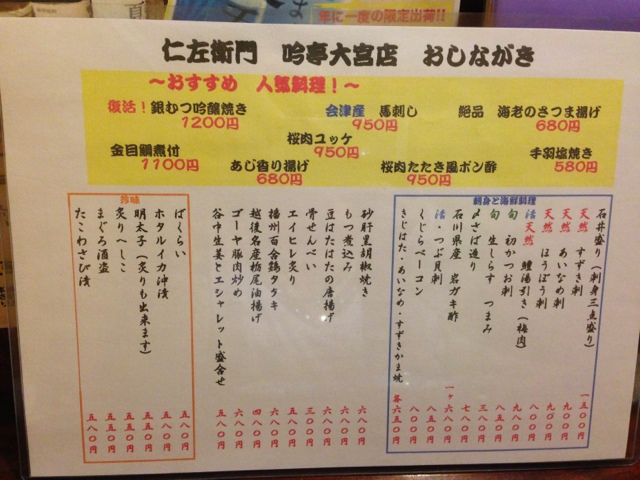 年に一度の限定出荷!!
仁左衛門 吟亭大宮店 おしながき
～おすすめ 人気料理！～
復活！銀むつ吟醸焼き
1200円
会津産 馬刺し
950円
絶品 海老のさつま揚げ
680円
桜肉ユッケ
950円
金目鯛煮付
1100円
あじ香り揚げ
680円
桜肉たたき風ポン酢
950円
手羽塩焼き
580円
刺身と海鮮料理
石井盛り(刺身三点盛り) 一五〇〇円
天然 すずき刺 九〇〇円
天然 あいなめ刺 九〇〇円
天然 ほうぼう刺 九〇〇円
活天然 鱧湯引き(梅肉) 八〇〇円
旬 初かつお刺 九八〇円
旬 生しらす つまみ 四八〇円
〆さば造り 七八〇円
石川県産 岩ガキ酢 一ケ六八〇円
活・つぶ貝刺 八五〇円
くじらベーコン 八〇〇円
きじはた・あいなめ・すずきかま焼 各六五〇円
砂肝黒胡椒焼き 六八〇円
もつ煮込み 六八〇円
豆はたはたの唐揚げ 六八〇円
骨せんべい 三〇〇円
エイヒレ炙り 五八〇円
播州百合鶏タタキ 六八〇円
越後名産栃尾油揚げ 四八〇円
ゴーヤ豚肉炒め 六八〇円
谷中生姜とエシャレット盛合せ 五八〇円
珍味
ばくらい 五八〇円
ホタルイカ沖漬 五八〇円
明太子(炙りも出来ます) 五八〇円
炙りへしこ 五八〇円
まぐろ酒盗 五八〇円
たこわさび漬 五八〇円